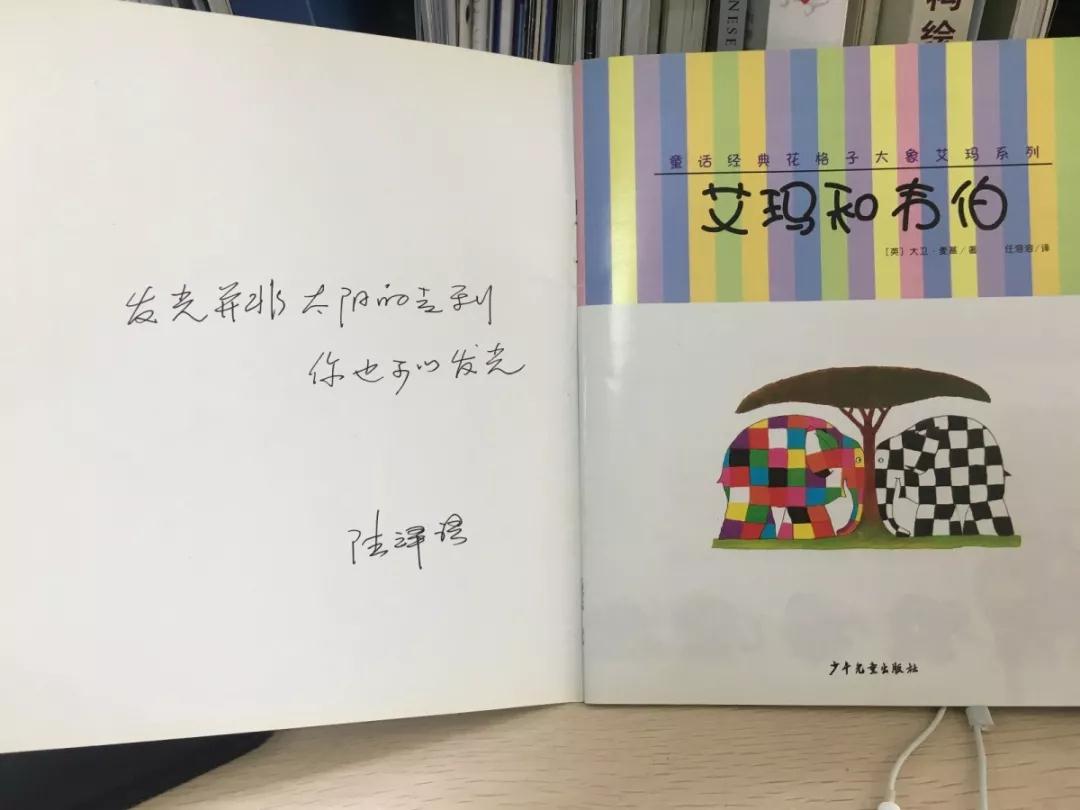 NESE
构绘
发光并非太阳的专利
你也可以发光
童话经典花格子大象艾玛系列
艾玛和韦伯
[英]大卫·麦基/著 任溶溶/译
少年儿童出版社